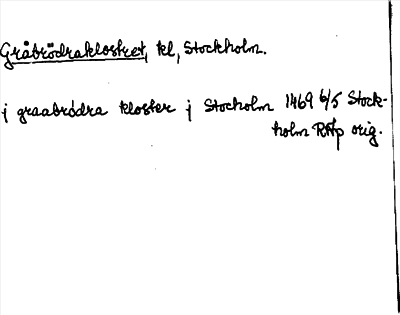 Gråbrödraklostret, kl, Stockholm.
j graabrødra kloster j Stocholm 1469 6/5 Stock-
holm RAp orig.